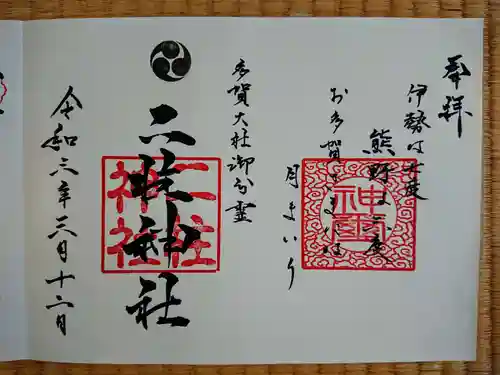 奉拝
伊勢は七度
熊野は三度
お多賀さまへは
月まいり
神璽
多賀大社御分霊
二柱神社
二柱神社
令和六年三月十二日